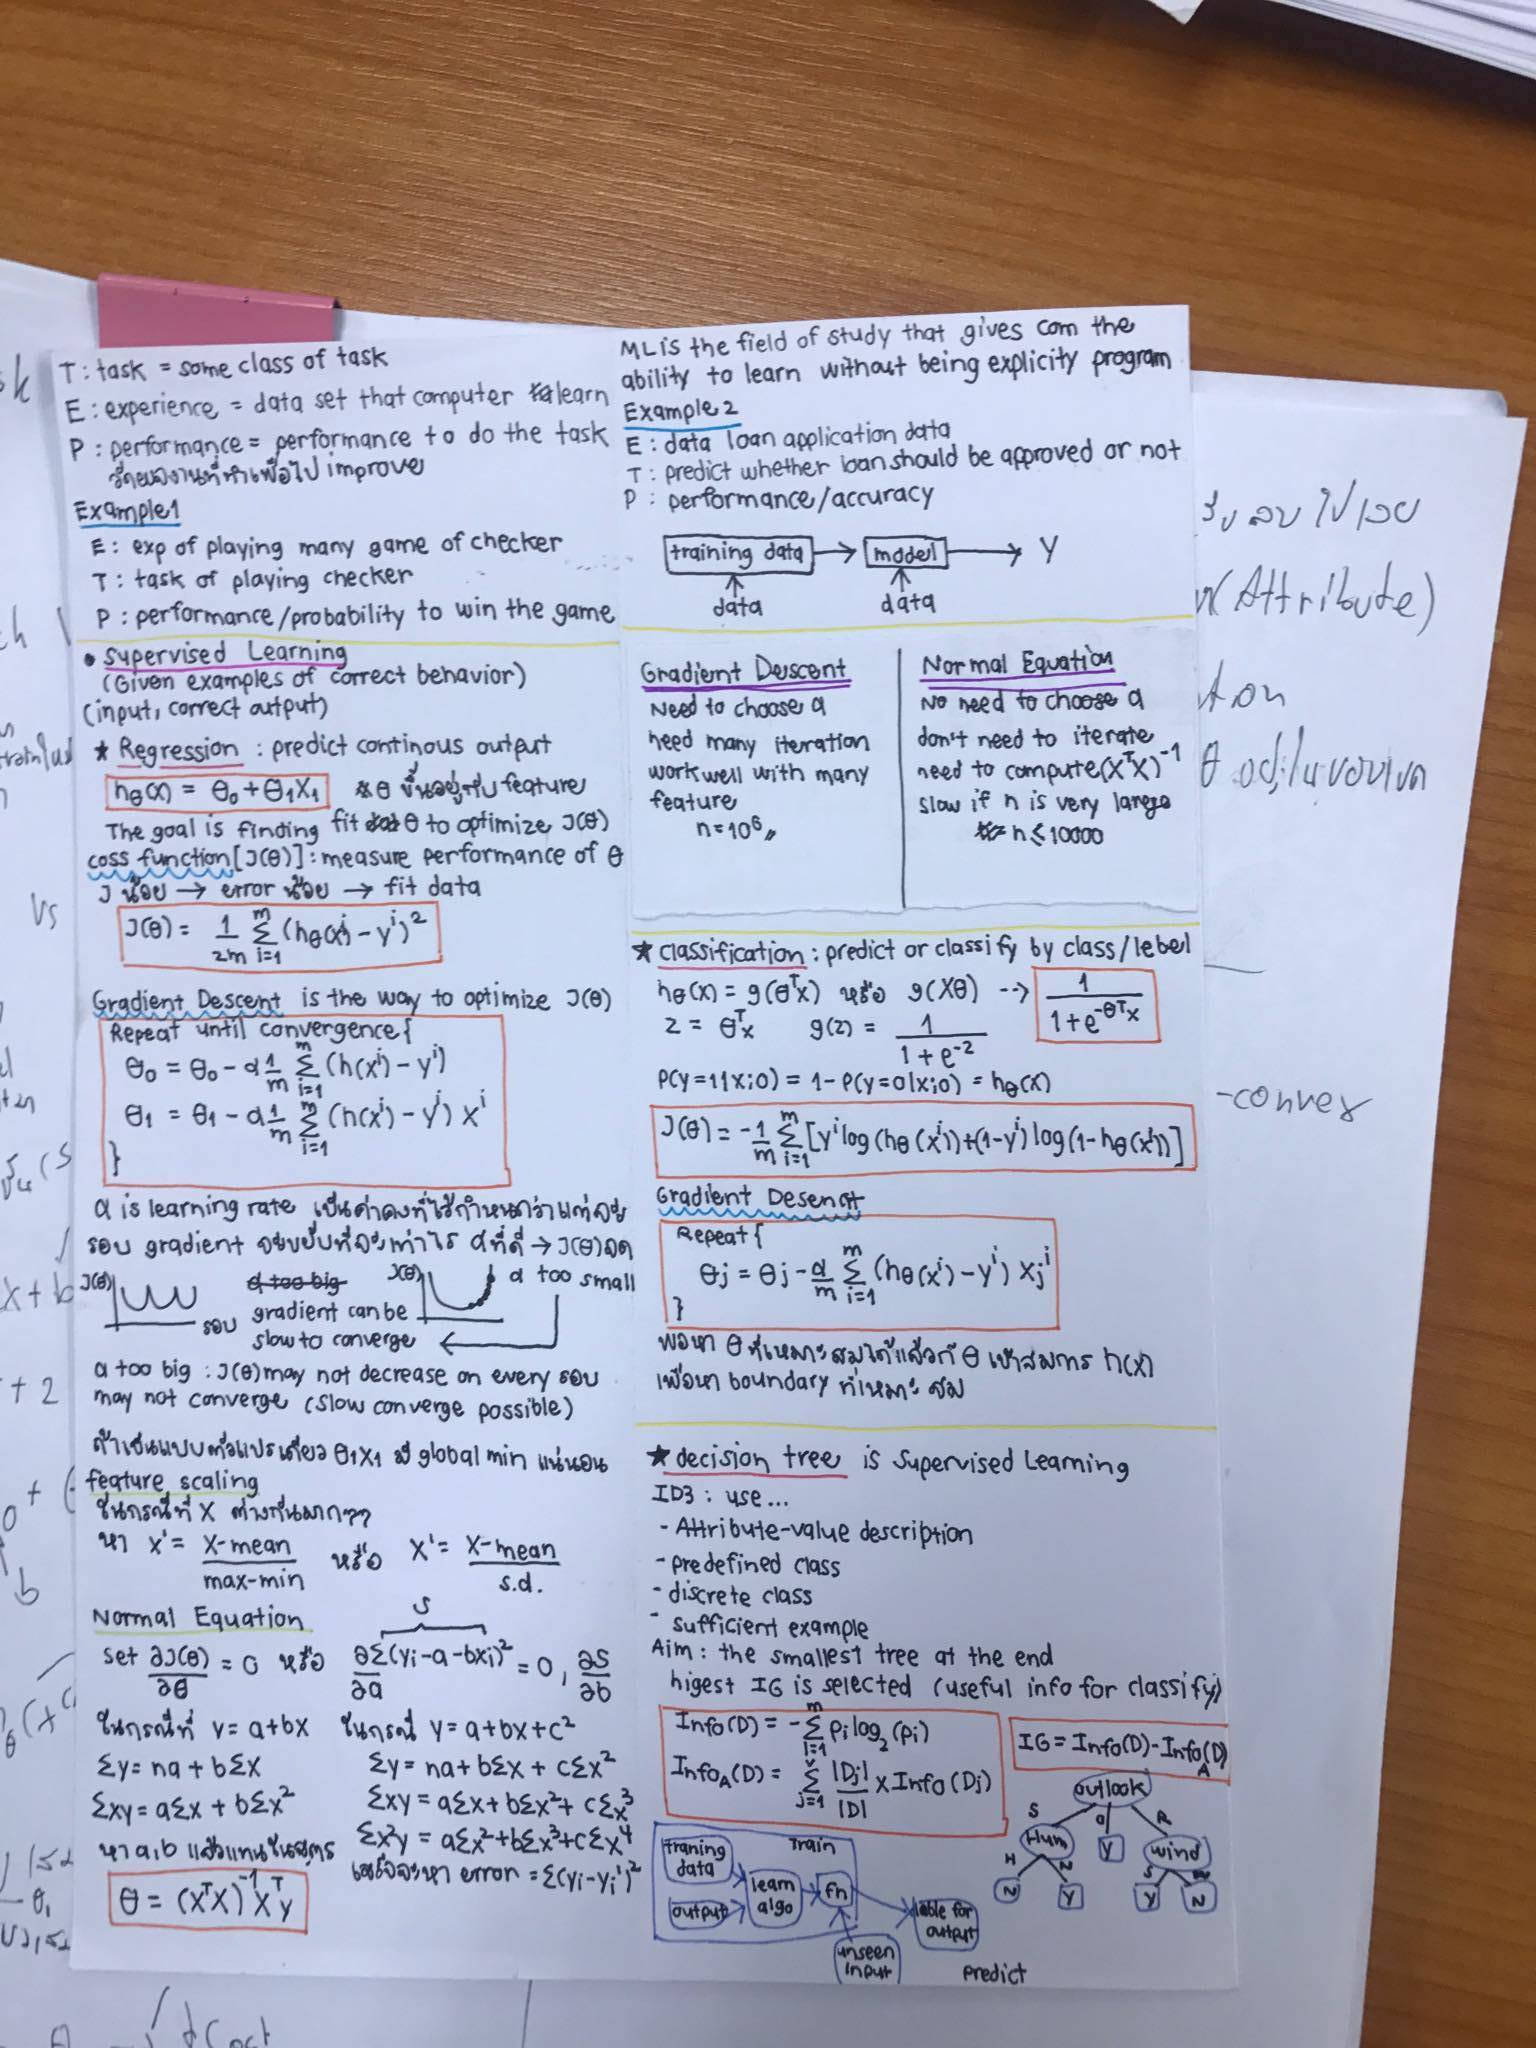 T : task = some class of task
E : experience = data set that computer learn
P : performance = performance to do the task
วัดผลงานที่ทำเพื่อไป improve
Example1
E : exp of playing many game of checker
T : task of playing checker
P : performance/probability to win the game
• Supervised Learning
(Given examples of correct behavior)
(input, correct output)
★ Regression : predict continous output
hθ(x) = θ₀ + θ₁X₁ θ ขึ้นอยู่กับ feature
The goal is finding fit θ to optimize J(θ)
coss function [J(θ)] : measure performance of θ
J น้อย → error น้อย → fit data
J(θ) = 1/2m Σᵢ₌₁ᵐ (hθ(xⁱ) - yⁱ)²
Gradient Descent is the way to optimize J(θ)
Repeat until convergence {
θ₀ = θ₀ - α 1/m Σᵢ₌₁ᵐ (h(xⁱ) - yⁱ)
θ₁ = θ₁ - α 1/m Σᵢ₌₁ᵐ (h(xⁱ) - yⁱ) xⁱ
}
α is learning rate เป็นค่าคงที่ไว้กำหนดว่าแต่ละ
รอบ gradient จะขยับทีละเท่าไร α ที่ดี → J(θ) ลด
J(θ) รอบ
α too big
gradient can be
slow to converge
J(θ) α too small
α too big : J(θ) may not decrease on every รอบ
may not converge (slow converge possible)
ถ้าเป็นแบบตัวแปรเดียว θ₁X₁ มี global min แน่นอน
feature scaling
ในกรณีที่ X ต่างกันมากๆๆ
หา x' = x-mean / max-min หรือ x' = x-mean / s.d.
Normal Equation
S
set ∂J(θ)/∂θ = 0 หรือ ∂Σ(yi-a-bxi)²/∂a = 0, ∂S/∂b
ในกรณีที่ y = a+bx
Σy = na + bΣx
Σxy = aΣx + bΣx²
หา a,b แล้วแทนในสูตร
θ = (XᵀX)⁻¹Xᵀy
ในกรณี y = a+bx+c²
Σy = na + bΣx + cΣx²
Σxy = aΣx + bΣx² + cΣx³
Σx²y = aΣx² + bΣx³ + cΣx⁴
error = Σ(yi-yi')²
ML is the field of study that gives com the
ability to learn without being explicity program
Example 2
E : data loan application data
T : predict whether loan should be approved or not
P : performance/accuracy
training data → model → Y
data data
Gradient Descent
Need to choose α
need many iteration
work well with many
feature
n = 10⁶
Normal Equation
No need to choose α
don't need to iterate
need to compute (XᵀX)⁻¹
slow if n is very large
n ≤ 10000
★ classification : predict or classify by class/lebel
hθ(x) = g(θᵀx) หรือ g(Xθ) --> 1/1+e^-θᵀx
z = θᵀx g(z) = 1/1+e^-z
P(y=1|x;θ) = 1-P(y=0|x;θ) = hθ(x)
J(θ) = -1/m Σᵢ₌₁ᵐ [yⁱ log(hθ(xⁱ)) + (1-yⁱ) log(1-hθ(xⁱ))]
Gradient Desenct
Repeat {
θj = θj - α/m Σᵢ₌₁ᵐ (hθ(xⁱ) - yⁱ) xjⁱ
}
พอหา θ ที่เหมาะสมได้แล้วก็ θ เข้าสมการ h(x)
เพื่อหา boundary ที่เหมาะสม
★ decision tree is Supervised Learning
ID3 : use...
- Attribute-value description
- predefined class
- discrete class
- sufficient example
Aim : the smallest tree at the end
higest IG is selected (useful info for classify)
Info(D) = -Σᵢ₌₁ᵐ pi log₂(pi)
Info_A(D) = Σⱼ₌₁ᵛ |Dj|/|D| x Info(Dj)
IG = Info(D) - Info_A(D)
outlook
S O R
Hum Y wind
H N S W
N Y Y N
traning data
output
learn algo
Train
fn
unseen input
lable for output
predict
vs
(Attribute)